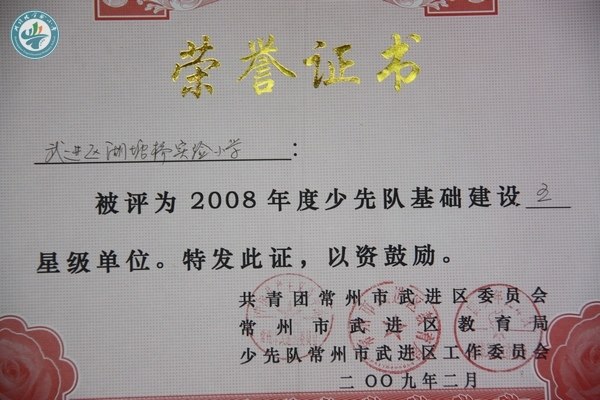 荣誉证书
武进区湖塘桥实验小学：
被评为2008年度少先队基础建设五
星级单位。特发此证，以资鼓励。
共青团常州市武进区委员会
常州市武进区教育局
少先队常州市武进区工作委员会
二〇〇九年二月